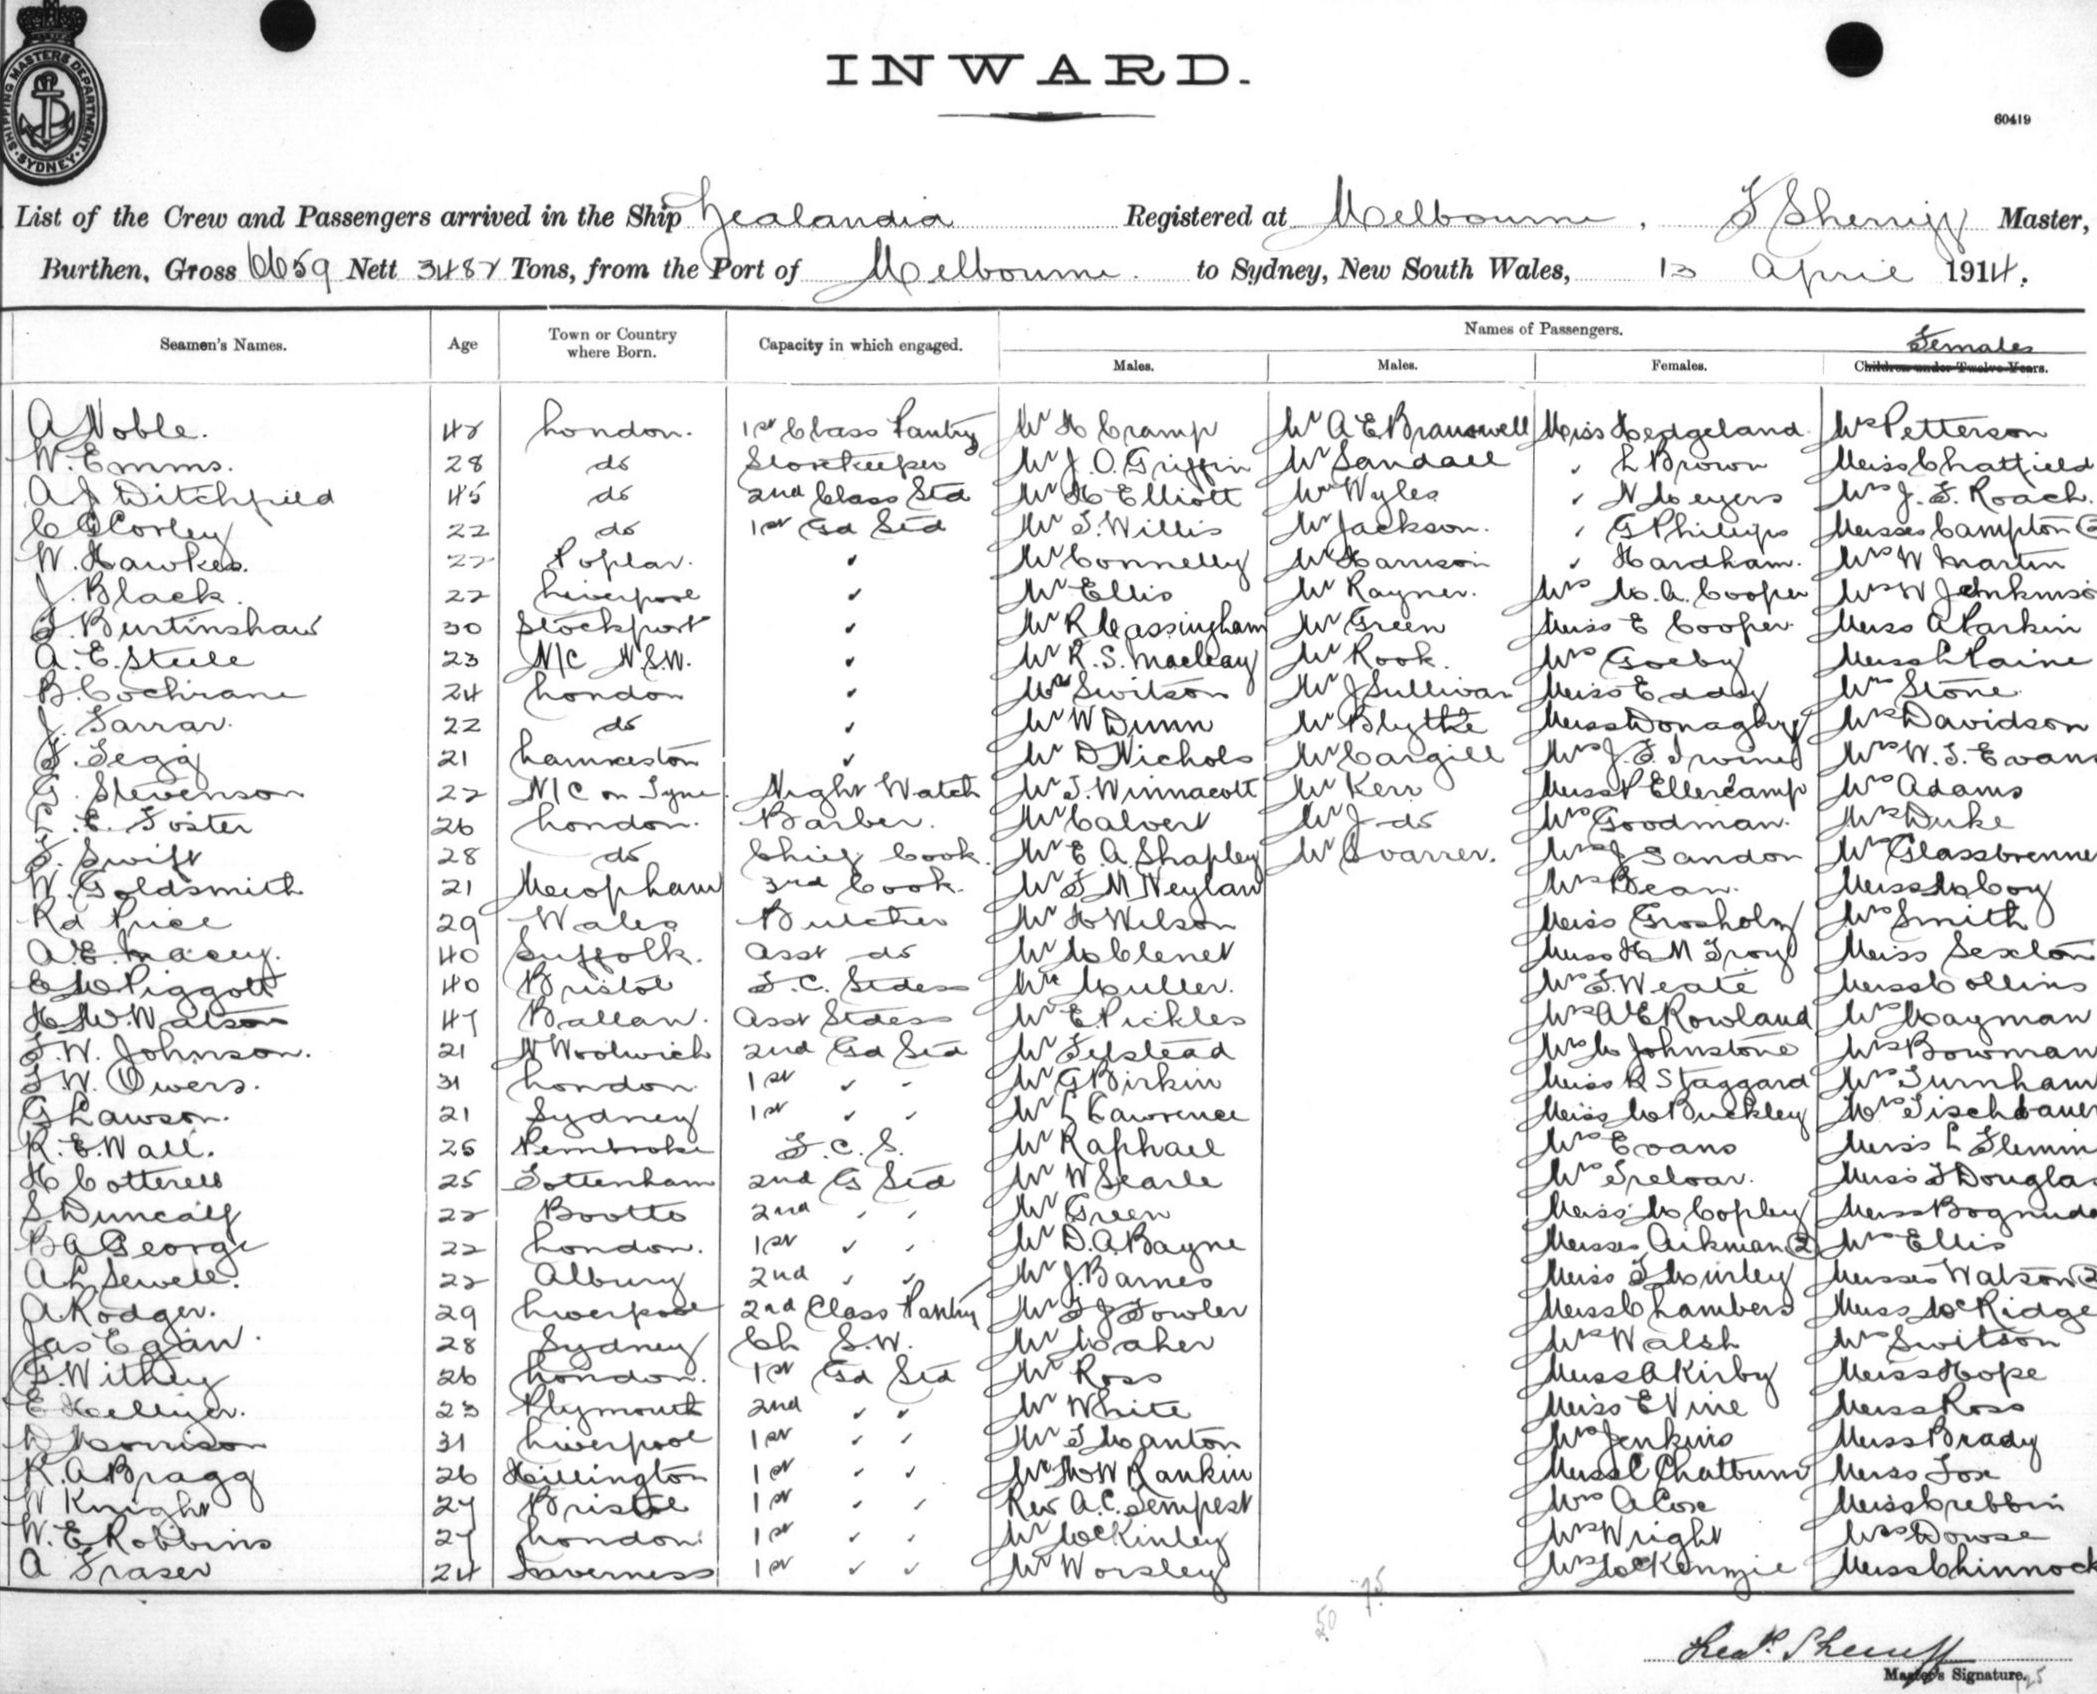 SHIPPING MASTERS DEPARTMENT · SYDNEY ·
INWARD.
60419
List of the Crew and Passengers arrived in the Ship Zealandia Registered at Melbourne, F Sherriff Master,
Burthen, Gross 6659 Nett 3487 Tons, from the Port of Melbourne. to Sydney, New South Wales, 13 April 1914.
Names of Passengers.
Seamen's Names. Age Town or Country where Born. Capacity in which engaged. Males. Males. Females. Females Children under Twelve Years.
A Noble. 42 London. 1st Class Pantry Mr H Cramp Mr A E Bramwell Miss Hedgeland Mrs Petterson
W. Emms. 28 do Storekeeper Mr J. O. Griffin Mr Sandall " L Brown Miss Chatfield
A J Ditchfield 45 do 2nd Class Std Mr H Elliott Mr Wyles " N Meyers Mrs J. F. Roach
C G Corley 22 do 1st Gd Std Mr T. Willis Mr Jackson. " G Phillips Misses Campton 2
W. Hawkes. 22 Poplar. " Mr Connelly Mr Harrison " Hardham. Mrs W Martin
J. Black. 22 Liverpool " Mr Ellis Mr Rayner. Mrs M. A. Cooper Mrs W Jenkinso
F. Burtinshaw 30 Stockport " Mr R Massingham Mr Green Miss E Cooper Miss A Parkin
A. E. Steele 23 N/C N.S.W. " Mr R. S. Macleay Mr Rook. Mrs Goeby Miss L Paine
B. Cochrane 24 London " Mr Switson Mr J Sullivan Miss Eddy Mrs Stone
J. Farrar. 22 do " Mr W Dunn Mr Blythe Miss Donaghy Mrs Davidson
F. Tegg 21 " Mr D Nichols Mr Cargill Mrs J. F. Irvine Mrs W. J. Evans
G. Stevenson 22 N/C on Tyne. Night Watch Mr T. Winnacott Mr Kerr Miss P Ellercamp Mrs Adams
E. Foster 26 London. Barber. Mr Calvert Mr J do Mrs Goodman. Mrs Duke
F. Swift 28 do Chief Cook. Mr E. A. Shapley Mr Svarrer. Mrs J Sandon Mrs Glassbrenne
W. Goldsmith 21 Meopham 3rd Cook. Mr T M Neylan Mrs Bean. Miss McCoy
Rd Price 29 Wales Butcher Mr H Wilson Miss Grosholz Mrs Smith
A. E. Macey. 40 Suffolk. Asst do Mr McClenet Miss H M Troy Miss Sexton
E M Piggott 40 Bristol F. C. Stdess Mr Muller. Mrs F. Weate Miss Collins
H. M. Watson 47 Ballan. Asst Stdess Mr E. Pickles Mrs A E Rowland Mrs Mayman
F. W. Johnson. 21 N Woolwich 2nd Gd Std Mr Felstead Mrs M Johnstone Mrs Bowman
F. W. Owers. 31 London. 1st " " Mr G Birkin Miss R Staggard Mrs Turnham
G Lawson. 21 Sydney 1st " " Mr L Lawrence Miss M Buckley Mrs Tischbauer
R. E. Wall. 25 Pembroke F. C. S. Mr Raphael Mrs Evans Miss L Flemin
H Cotterell 25 Tottenham 2nd G Std Mr W Searle Mrs Treloar. Miss F Douglas
S Duncalf 22 Bootle 2nd " " Mr Green Miss M Copley Miss Bognuda
B A George 22 London. 1st " " Mr D. A. Bayne Misses Aikman 2 Mrs Ellis
A L Sewell. 22 Albury 2nd " " Mr J. Barnes Miss T Murley Misses Watson 2
A Rodger. 29 Liverpool 2nd Class Pantry Mr F J Fowler Miss Chambers Miss McRidge
Jas Egan. 28 Sydney Ch S. W. Mr Maher Mrs Walsh Mrs Switson
G. Withey 26 London. 1st Gd Std Mr Ross Miss A Kirby Miss Hope
E Hellyer. 23 Plymouth 2nd " " Mr White Miss E Vine Miss Ross
D Morrison 31 Liverpool 1st " " Mr T Manton Mrs Jenkins Miss Brady
R. A Bragg 26 Hillington 1st " " Mr M W Rankin Miss C Chatburn Miss Fox
W Knight 27 Bristol 1st " " Rev A. C. Tempest Mrs A Cox Miss Crebbin
W. E Robbins 27 London. 1st " " Mr McKinley Mrs Wright Mrs Dowse
A Fraser 24 Inverness 1st " " Mr Worsley Mrs McKenzie Miss Chinnock
50 75
Fredk Sherriff
Master's Signature.